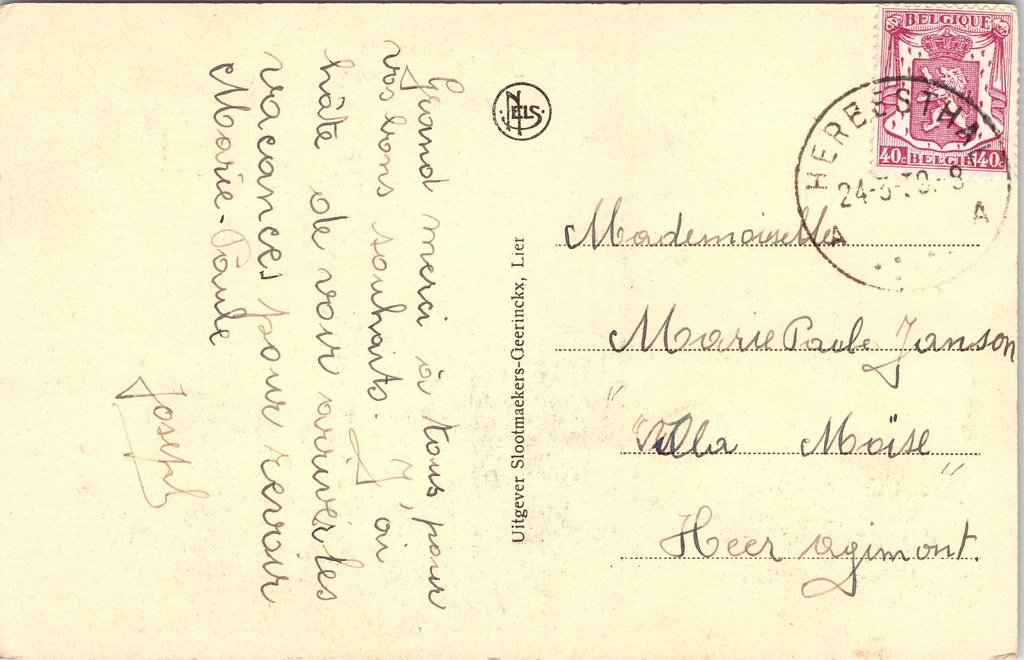 Grand merci à tous pour
vos bons souhaits. J'ai
hâte de voir arriver les
vacances pour revoir
Marie-Paule
Joseph
NELS
Uitgever Slootmaekers-Geerinckx, Lier
BELGIQUE
40c BELGIE 40c
HERBESTHAL
A A
Mademoiselle
Marie Paule Janson
"Villa Moïse"
Heer Agimont.